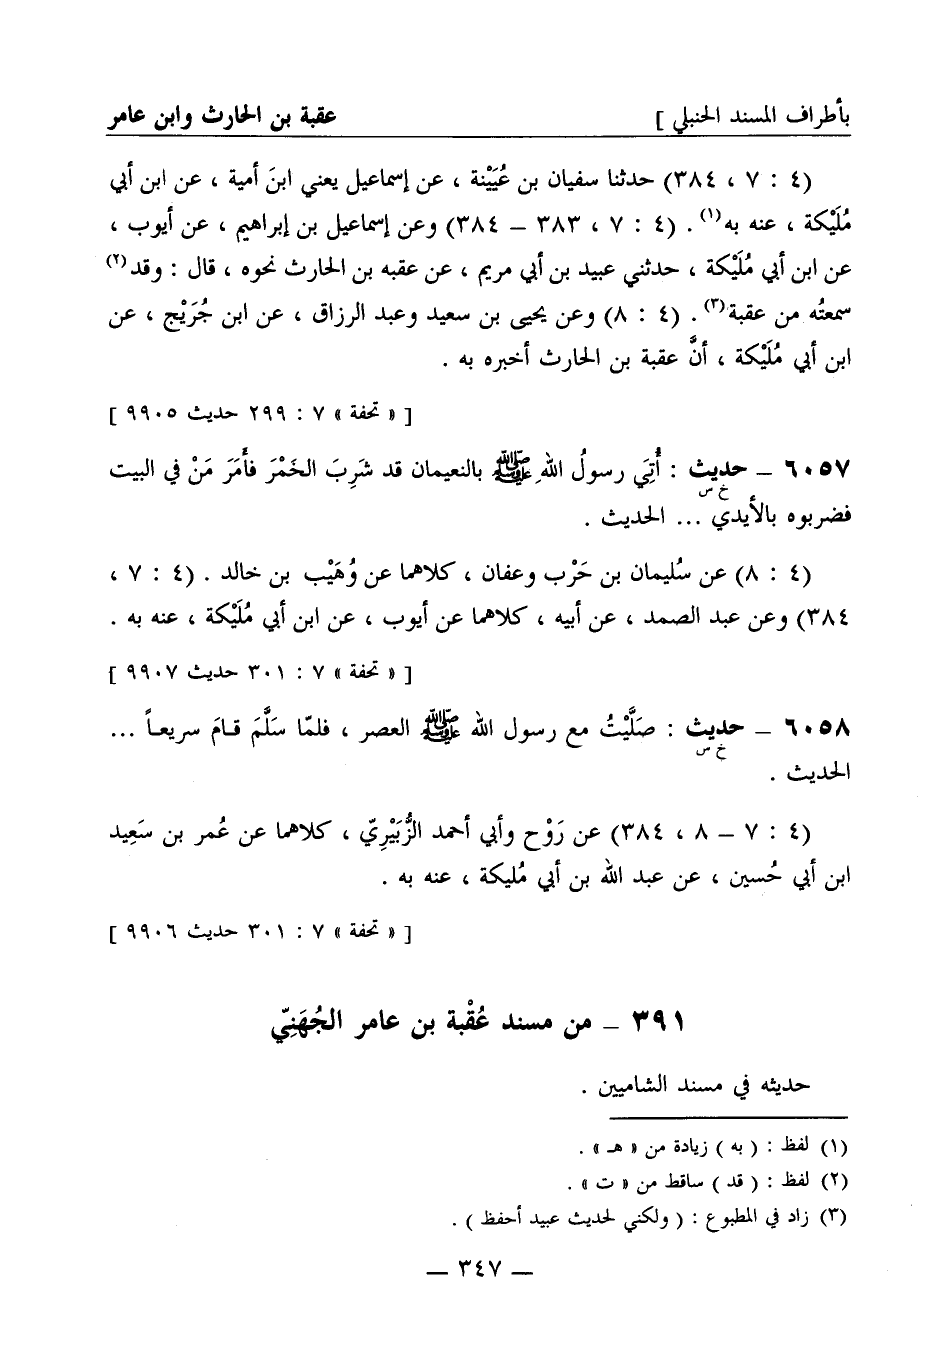 بأطراف المسند الحنبلي ] عقبة بن الحارث وابن عامر
(٤ : ٧ ، ٣٨٤) حدثنا سفيان بن عُيَيْنة ، عن إسماعيل يعني ابنَ أمية ، عن ابن أبي
مُلَيْكة ، عنه به(١) . (٤ : ٧ ، ٣٨٣ – ٣٨٤) وعن إسماعيل بن إبراهيم ، عن أيوب ،
عن ابن أبي مُلَيْكة ، حدثني عبيد بن أبي مريم ، عن عقبه بن الحارث نحوه ، قال : وقد(٢)
سمعتُه من عقبة(٣) . (٤ : ٨) وعن يحيى بن سعيد وعبد الرزاق ، عن ابن جُرَيْج ، عن
ابن أبي مُلَيْكة ، أنَّ عقبة بن الحارث أخبره به .
[ « تحفة » ٧ : ٢٩٩ حديث ٩٩٠٥ ]
٦٠٥٧ – حديث : أُتِيَ رسولُ اللهِ ﷺ بالنعيمان قد شَرِبَ الخَمْرَ فأَمَرَ مَنْ في البيت
خ س
فضربوه بالأيدي ... الحديث .
(٤ : ٨) عن سُليمان بن حَرْب وعفان ، كلاهما عن وُهَيْب بن خالد . (٤ : ٧ ،
٣٨٤) وعن عبد الصمد ، عن أبيه ، كلاهما عن أيوب ، عن ابن أبي مُلَيْكة ، عنه به .
[ « تحفة » ٧ : ٣٠١ حديث ٩٩٠٧ ]
٦٠٥٨ – حديث : صَلَّيْتُ مع رسول الله ﷺ العصر ، فلمّا سَلَّمَ قـامَ سريعـاً ...
خ س
الحديث .
(٤ : ٧ – ٨ ، ٣٨٤) عن رَوْح وأبي أحمد الزُّبَيْرِيّ ، كلاهما عن عُمر بن سَعِيد
ابن أبي حُسين ، عن عبد الله بن أبي مُليكة ، عنه به .
[ « تحفة » ٧ : ٣٠١ حديث ٩٩٠٦ ]
٣٩١ – من مسند عُقْبة بن عامر الجُهَنِيّ
حديثه في مسند الشاميين .
(١) لفظ : ( به ) زيادة من « هـ » .
(٢) لفظ : ( قد ) ساقط من « ت » .
(٣) زاد في المطبوع : ( ولكني لحديث عبيد أحفظ ) .
– ٣٤٧ –